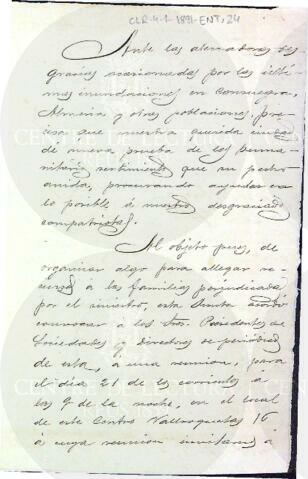 CLR-4-1-1891-ENT, 24
Ante las aterradoras des
gracias ocasionadas por las últi
mas inundaciones en Consuegra,
Almeria y otras poblaciones, pre
cisa que nuestra querida ciudad
dé nueva prueba de los huma
nitarios sentimientos que su pecho
anida, procurando ayudar en
lo posible á nuestros desgraciados
compatriotas.
Al objeto pues, de
organizar algo para allegar re
cursos á las familias perjudicadas
por el siniestro, esta Junta acordó
convocar á los Sres. Presidentes de
Sociedades y directores de periódicos
de esta, á una reunion, para
el dia 21 de los corrientes á
las 9 de la noche, en el local
de este Centro Vallroquetas 16
á cuya reunion invitamos á